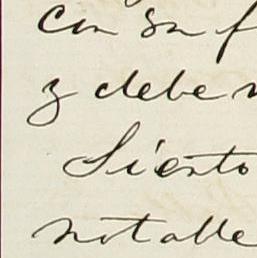 con su f
y debe
Siento
notable